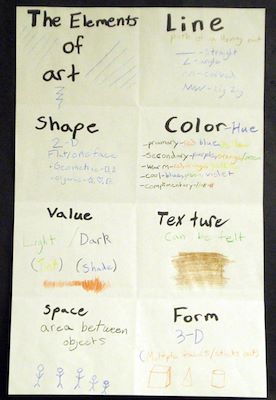 The Elements
of
art
Line
path of a moving point
- straight
- angle
- curved
- zig zag
Shape
2-D
Flat/one face
- Geometric -
- Organic -
Color - Hue
- primary - red blue yellow
- secondary - purple orange green
- Warm - orange
- cool - blue, green, violet
- complimentary -
Value
Light / Dark
(Tint) (Shade)
Texture
Can be felt
Space
area between
objects
Form
3-D
(Multiple faces/sticks out)